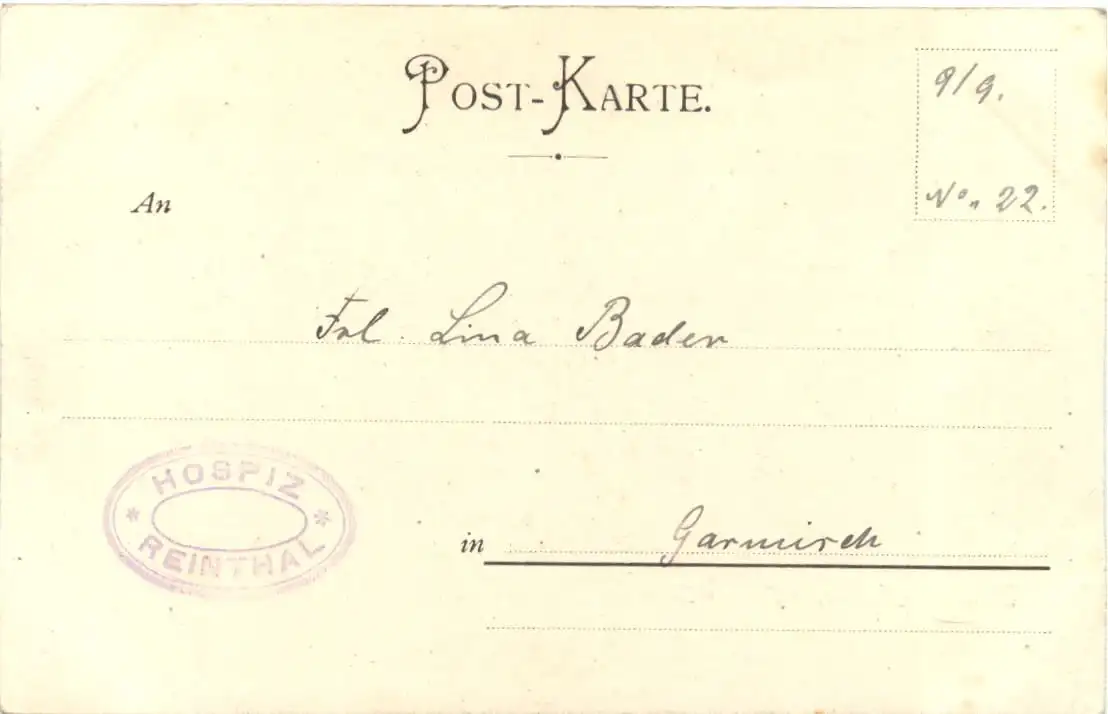 POST-KARTE.
9/9.
No. 22.
An
Frl. Lina Bader
HOSPIZ
REINTHAL
in Garmisch